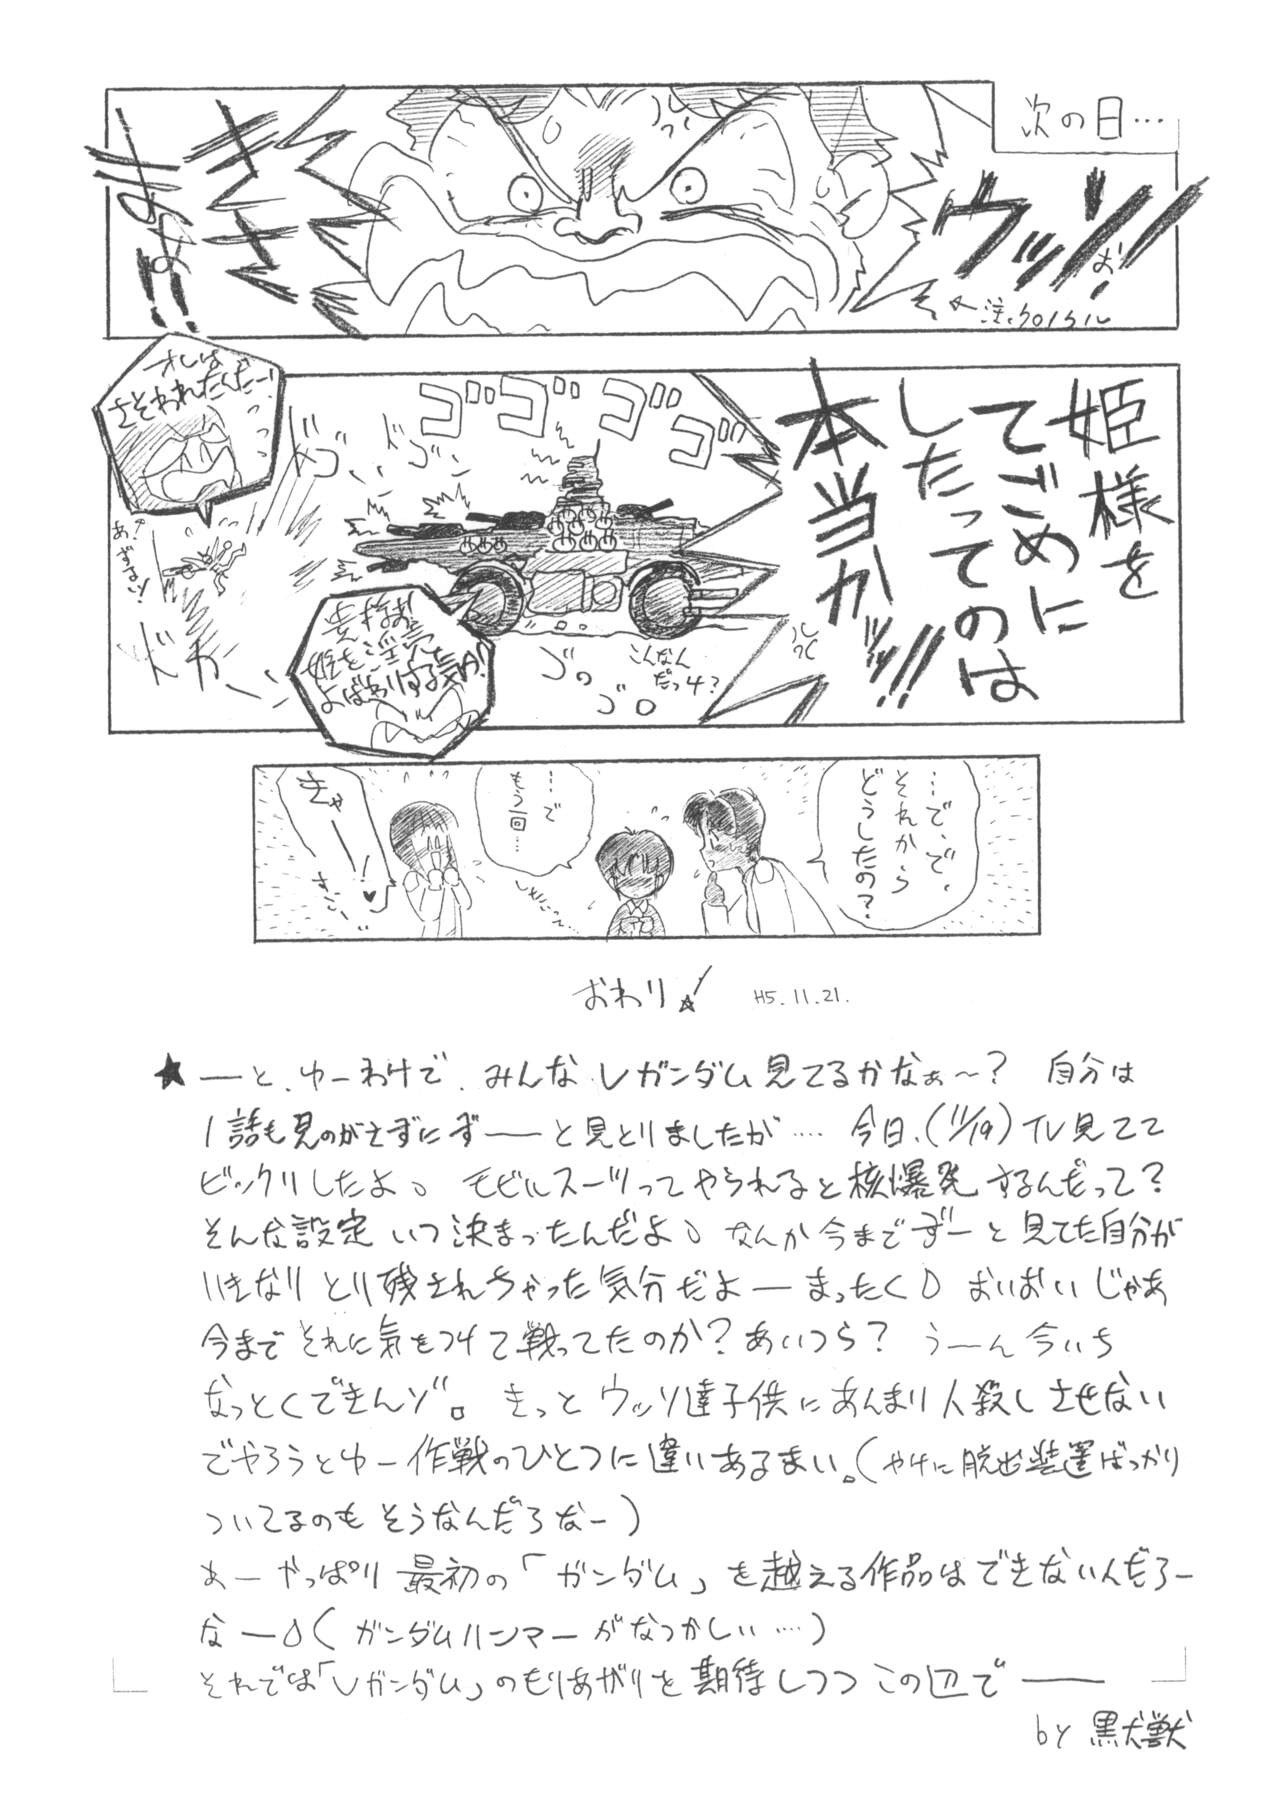 次の日…
ウッソ
お!
そ ←注、クロノクル
きさ
まぁ!!
姫様を
てごめに
したってのは
本当かッ!!
ゴゴゴゴ
オレは
さそわれたんだー!
ドゴ
ドゴ
ドカ
こんなん
だっけ?
ゴロ
ゴロ
貴様ぁ!
姫を淫売
よばわりする気か!!
…で、で、
それから
どうしたの?
…で
もう一回…
きゃー!♥
すごい
おわり! H5.11.21.
★ ーと、ゆーわけで、みんなVガンダム見てるかなぁ〜? 自分は
1話も見のがさずにずーーと見とりましたが…… 今日、(11/19)TV見てて
ビックリしたよ。モビルスーツってやられると核爆発するんだって?
そんな設定いつ決まったんだよ。なんか今までずーと見てた自分が
いきなりとり残されちゃった気分だよーまったく。おいおいじゃあ
今までそれに気をつけて戦ってたのか?あいつら? うーん今いち
なっとくできんゾ。きっとウッソ達子供にあんまり人殺しさせない
でやろうとゆー作戦のひとつに違いあるまい。(やけに脱出装置ばっかり
ついてるのもそうなんだろなー)
あーやっぱり最初の「ガンダム」を越える作品はできないんだろー
なー。(ガンダムハンマーがなつかしい……)
それでは「Vガンダム」のもりあがりを期待しつつこの辺でーー
by 黒犬獣